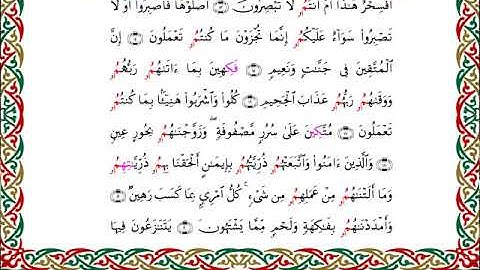 أَفَسِحْرٌ هَٰذَا أَمْ أَنتُمُۥ لَا تُبْصِرُونَ ۝ اَصْلَوْهَا فَاصْبِرُوا۟ أَوْ لَا
تَصْبِرُوا۟ سَوَآءٌ عَلَيْكُمُۥ إِنَّمَا تُجْزَوْنَ مَا كُنتُمُۥ تَعْمَلُونَ ۝ إِنَّ
اَلْمُتَّقِينَ فِى جَنَّٰتٍ وَنَعِيمٍ ۝ فَكِهِينَ بِمَآ ءَاتَىٰهُمُۥ رَبُّهُمُۥ
وَوَقَىٰهُمُۥ رَبُّهُمُۥ عَذَابَ اَلْجَحِيمِ ۝ كُلُوا۟ وَاشْرَبُوا۟ هَنِيٓـًٔۢا بِمَا كُنتُمُۥ
تَعْمَلُونَ ۝ مُتَّكِينَ عَلَىٰ سُرُرٍ مَّصْفُوفَةٍ ۖ وَزَوَّجْنَٰهُمُۥ بِحُورٍ عِينٍ
۝ وَالَّذِينَ ءَامَنُوا۟ وَاتَّبَعَتْهُمُۥ ذُرِّيَّتُهُمُۥ بِإِيمَٰنٍ أَلْحَقْنَا بِهِمُۥ ذُرِّيَّٰتِهِمُۥ
وَمَآ أَلَتْنَٰهُمُۥ مِنْ عَمَلِهِمُۥ مِن شَىْءٍ ۚ كُلُّ اُمْرِىٍٕۭ بِمَا كَسَبَ رَهِينٌ ۝
وَأَمْدَدْنَٰهُمُۥ بِفَٰكِهَةٍ وَلَحْمٍ مِّمَّا يَشْتَهُونَ ۝ يَتَنَٰزَعُونَ فِيهَا